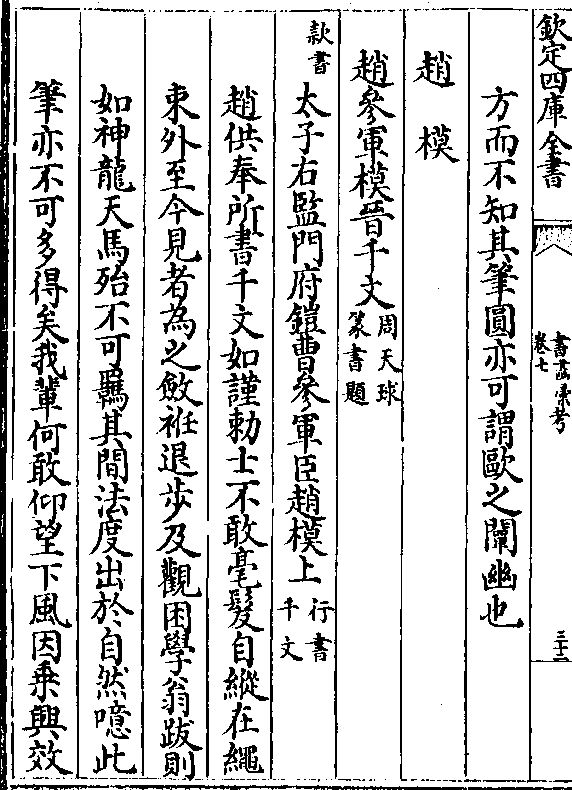 欽定四庫全書
書畫彙考
卷七
三十二
方而不知其筆圓亦可謂歐之闡幽也
趙模
趙參軍模晉千文
周天球
篆書題
款書
太子右監門府鎧曹參軍臣趙模上
行書
千文
趙供奉所書千文如謹勅士不敢毫髮自縱在繩
束外至今見者為之斂袵退步及觀困學翁跋則
如神龍天馬殆不可羈其間法度出於自然噫此
筆亦不可多得矣我輩何敢仰望下風因乗興效